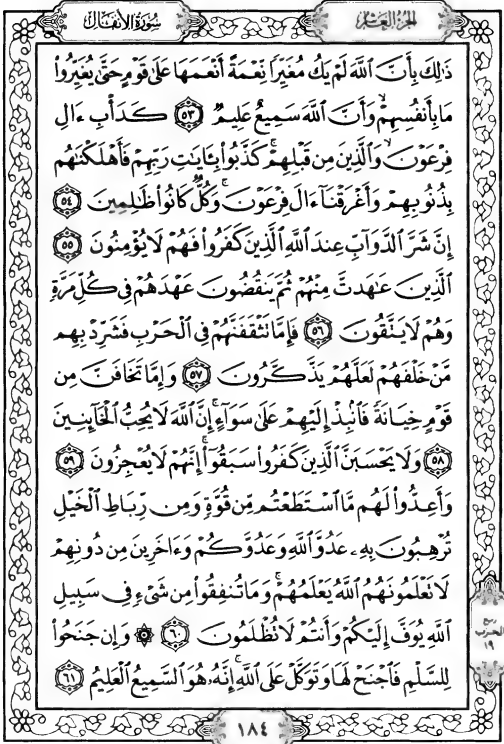 سُورَةُ الأَنفَالِ
الجُزْءُ العَاشِرُ
ذَٰلِكَ بِأَنَّ ٱللَّهَ لَمْ يَكُ مُغَيِّرًا نِّعْمَةً أَنْعَمَهَا عَلَىٰ قَوْمٍ حَتَّىٰ يُغَيِّرُوا۟
مَا بِأَنفُسِهِمْ ۙ وَأَنَّ ٱللَّهَ سَمِيعٌ عَلِيمٌ ٥٣ كَدَأْبِ ءَالِ
فِرْعَوْنَ ۙ وَٱلَّذِينَ مِن قَبْلِهِمْ ۚ كَذَّبُوا۟ بِـَٔايَـٰتِ رَبِّهِمْ فَأَهْلَكْنَـٰهُم
بِذُنُوبِهِمْ وَأَغْرَقْنَآ ءَالَ فِرْعَوْنَ ۚ وَكُلٌّ كَانُوا۟ ظَـٰلِمِينَ ٥٤
إِنَّ شَرَّ ٱلدَّوَآبِّ عِندَ ٱللَّهِ ٱلَّذِينَ كَفَرُوا۟ فَهُمْ لَا يُؤْمِنُونَ ٥٥
ٱلَّذِينَ عَـٰهَدتَّ مِنْهُمْ ثُمَّ يَنقُضُونَ عَهْدَهُمْ فِى كُلِّ مَرَّةٍ
وَهُمْ لَا يَتَّقُونَ ٥٦ فَإِمَّا تَثْقَفَنَّهُمْ فِى ٱلْحَرْبِ فَشَرِّدْ بِهِم
مَّنْ خَلْفَهُمْ لَعَلَّهُمْ يَذَّكَّرُونَ ٥٧ وَإِمَّا تَخَافَنَّ مِن
قَوْمٍ خِيَانَةً فَٱنۢبِذْ إِلَيْهِمْ عَلَىٰ سَوَآءٍ ۚ إِنَّ ٱللَّهَ لَا يُحِبُّ ٱلْخَآئِنِينَ
٥٨ وَلَا يَحْسَبَنَّ ٱلَّذِينَ كَفَرُوا۟ سَبَقُوٓا۟ ۚ إِنَّهُمْ لَا يُعْجِزُونَ ٥٩
وَأَعِدُّوا۟ لَهُم مَّا ٱسْتَطَعْتُم مِّن قُوَّةٍ وَمِن رِّبَاطِ ٱلْخَيْلِ
تُرْهِبُونَ بِهِۦ عَدُوَّ ٱللَّهِ وَعَدُوَّكُمْ وَءَاخَرِينَ مِن دُونِهِمْ
لَا تَعْلَمُونَهُمُ ٱللَّهُ يَعْلَمُهُمْ ۚ وَمَا تُنفِقُوا۟ مِن شَىْءٍ فِى سَبِيلِ
ٱللَّهِ يُوَفَّ إِلَيْكُمْ وَأَنتُمْ لَا تُظْلَمُونَ ٦٠ ۞ وَإِن جَنَحُوا۟
لِلسَّلْمِ فَٱجْنَحْ لَهَا وَتَوَكَّلْ عَلَى ٱللَّهِ ۚ إِنَّهُۥ هُوَ ٱلسَّمِيعُ ٱلْعَلِيمُ ٦١
ربع
الحزب
١٩
١٨٤